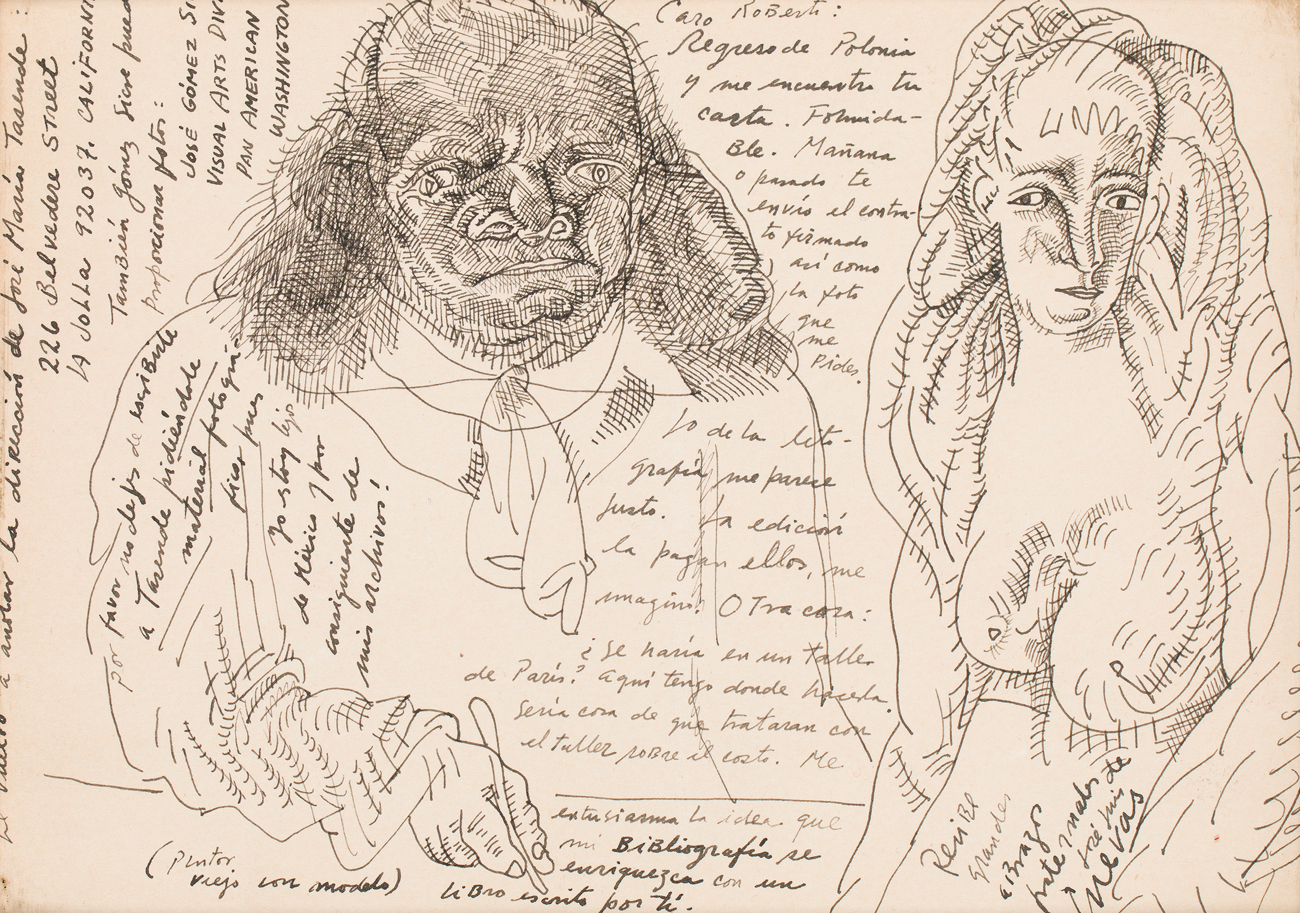 Caro Roberti:
Regreso de Polonia
y me encuentro tu
carta. Formida-
Ble. Mañana
o pasado te
envío el contra-
to firmado
así como
la foto
que
me
Pides.
Lo de la lito-
grafía me parece
justo. La edición
la pagan ellos, me
imagino. Otra cosa:
¿Se haría en un taller
de París? Aquí tengo donde hacerla.
Sería cosa de que trataran con
el taller sobre el costo. Me
entusiasma la idea que
mi BiBliografía se
enriquezca con un
liBro escrito por tí.
ReciBe
grandes
aBrazos
José Luis
CUEVAS
(Pintor
viejo con modelo)
Por favor no dejes de escriBirle
a Tasende pidiéndole
material fotográ-
fico pues
yo estoy lejos
de México y por
consiguiente de
mis archivos!
a anotar la dirección de José María Tasende:
226 Belvedere Street
LA Jolla 92037. CALIFORNI
También Gómez Sicre pued
Proporcionar fotos:
José GÓMEZ Si
VISUAL ARTS DIV
PAN AMERICAN
WASHINGTON